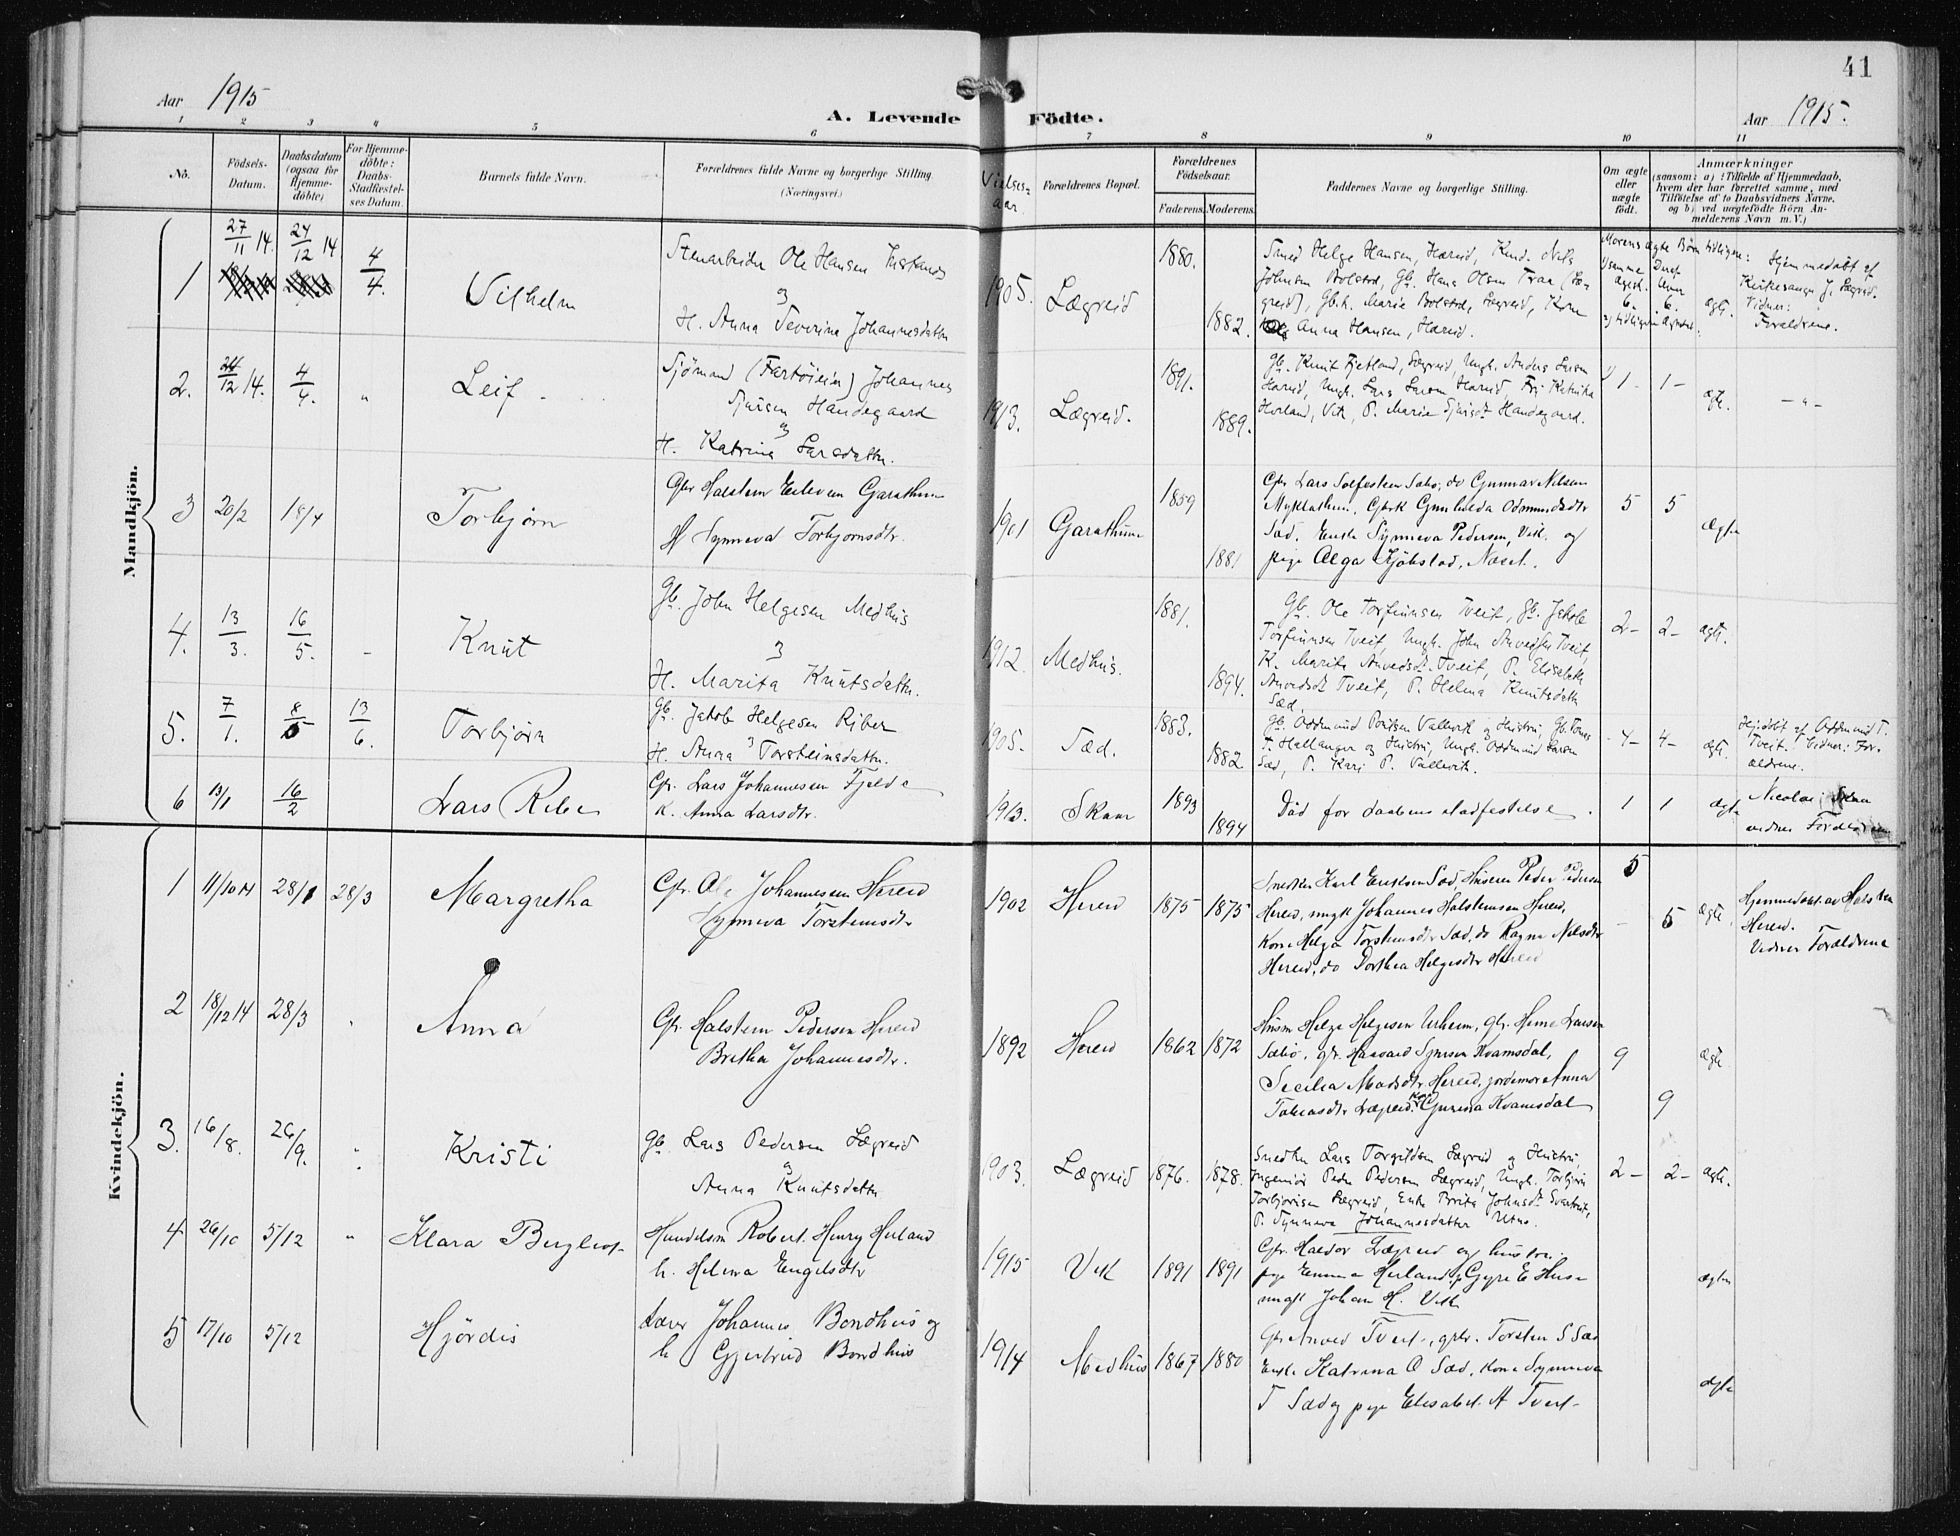 41
Aar 1915
A. Levende Födte.
Aar 1915.
1 2 3 4 5 6 7 8 9 10 11
No.
Födsels-
Datum.
Daabsdatum
(ogsaa for
Hjemme-
döbte)
For Hjemme-
döbte:
Daabs-
Stadfæstel-
ses Datum.
Barnets fulde Navn.
Forældrenes fulde Navne og borgerlige Stilling.
(Næringsvei.)
Vielses-
aar.
Forældrenes Bopæl.
Forældrenes
Födselsaar.
Faderens.
Moderens.
Faddernes Navne og borgerlige Stilling.
Om ægte
eller
uægte
födt.
Anmærkninger
(saasom: a) i Tilfælde af Hjemmedaab,
hvem der har forrettet samme, med
Tilföielse af to Daabsvidners Navne.
og b) ved uægtefödte Börn An-
melderens Navn m. V.)
Mandkjön.
1 27/11 14. 24/12 14 4/4. Vilhelm
Stenarbeider Ole Hansen
H. Anna Severina Johannesdatter
1905. Lægreid 1880. 1882.
Smed Helge Hansen, Hæreid, Kond. Nils
Johnsen Bolstad, Gb. Hans Olsen Traa (Læ-
greid), Gb.k. Marie Bolstad, Lægreid, Kone
Anna Hansen, Hæreid.
Morens ægte Børn tidligere:
ægte.
Hjemmedøbt af
Kirkesanger J. Lægreid.
Vidner:
Forældrene.
2. 12 14. 4/4. " Leif
Sjömand (Fartöieier) Johannes
Sjursen Handegaard
H. Katrina Larsdatter.
1913. Lægreid. 1891. 1889.
Gb. Knut Fjetland, Lægreid, Ungk. Anders Larsen
Hæreid, Ungk. Lars Larsen Hæreid, Frk Katrina
Herland, Vik, P. Marie Sjursdt Handegaard.
1 - 1 - ægte. - " -
3 20/2 18/4 Torbjørn
Gbr Halstein Eilevsen Garathun
H Synneva Torbjornsdtr.
1901 Garathun 1859 1881
Gbr Lars Solfestsen Sæbø, do Gunnar Nilsen
Myklathun, Gbrk Gunhilda Odmundsdtr
Sæd, Enke Synneva Pedersen, Vik. og
pige Alga Kjøkstad, Næset.
5 5 ægte
4. 13/3. 16/5. - Knut
Gb. John Helgesen Medhus
H. Marita Knutsdatter.
1912 Medhus. 1881. 1894.
Gb. Ole Torfinnsen Tveit, Gb. Jakob
Torfinnsen Tveit, Ungk. John Anvedsen Tveit,
K. Marita Anvedsdt. Tveit, P. Elisabeth
Anvedsdt Tveit, P. Helena Knutsdatter
Sæd.
2 - 2 - ægte.
5. 7/1. 8/5 13/6. Torbjørn
Gb. Jakob Helgesen Riber
H. Anna Torsteinsdatter.
1905. Sæd. 1883. 1882
Gb. Oddmund Vallevik og Hustru, Gb. Tomas
T. Hallanger og Hustru, Ungk. Oddmund Larsen
Sæd, P. Kari P. Vallevik.
4 - 4 - ægte.
Hj.døbt af Oddmund T.
Tveit. Vidner: For-
ældrene.
6 13/1 16/2 Lars Ribe
Gbr. Lars Johannesen Fjelde
K. Anna Larsdtr.
1913. Skaar 1893 1894
Död for daabens stadfestelse.
1 1 ægte
Nicolai
vidner Forældrene
Kvindekjön.
1 11/10 14 28/1 28/3 Margretha
Gbr. Ole Johannesen Hereid
Synneva Torsteinsdtr
1902 Hereid 1875 1875
Snedker Karl Eriksen Sæd, Husmn Peder Pedersen
Hereid, ungk Johannes Halsteinsen Hereid,
Kone Helga Torsteinsdtr Sæd, do Ragna Nilsdtr
Hereid, do Dorthea Helgesdtr Hereid
5 5 ægte.
Hjemmedøbt av Halstein
Hereid.
Vidner Forældrene
2 18/12 14 28/3 Anna
Gbr. Halstein Pedersen Hereid
Britha Johannesdtr.
1892 Hereid 1862 1872
Husm Helge Helgesen Urheim, Gbr. Larsen
Sæbø, gbr. Haavard Sjursen Kvamsdal,
Secilia Madsdtr Hereid, jordmor Anna
Tobiasdtr Lægreid, Kone Kvamsdal
9 9 ægte
3. 16/8. 26/9. Kristi
Gb. Lars Pedersen Lægreid
Anna Knutsdatter
1903. Lægreid 1876. 1878.
Snedker Lars Torgilsen Lægreid og Hustru,
Ingeniör Peder Pedersen Lægreid, Ungk. Torbjörn
Torbjörnsen Lægreid, Enke Brita Johnsdt Svartveit,
P. Synneva Johannesdatter Utne.
2 - 2 - ægte.
4 26/10 5/12 " Klara Bergliot
Handelsm Robert Henry Herland
h. Helena Engelsdtr
1915 Vik 1891 1891
Gbr. Haldor Lægreid og hustru
pige Emma Herland, p Gyri E Huse
ungk Johan H. Vik
ægte
5 17/10 5/12 Hjördis
Lærer Johannes Bondhus og
h Gjertrud Bondhus
1914 Medhus 1867 1880
Gbr Anved Tveit, gbr. Torstein S Sæd
Enke Katrina O Sæd, Kone Synneva
T Sæd og pige Elisabet A Tveit
ægte